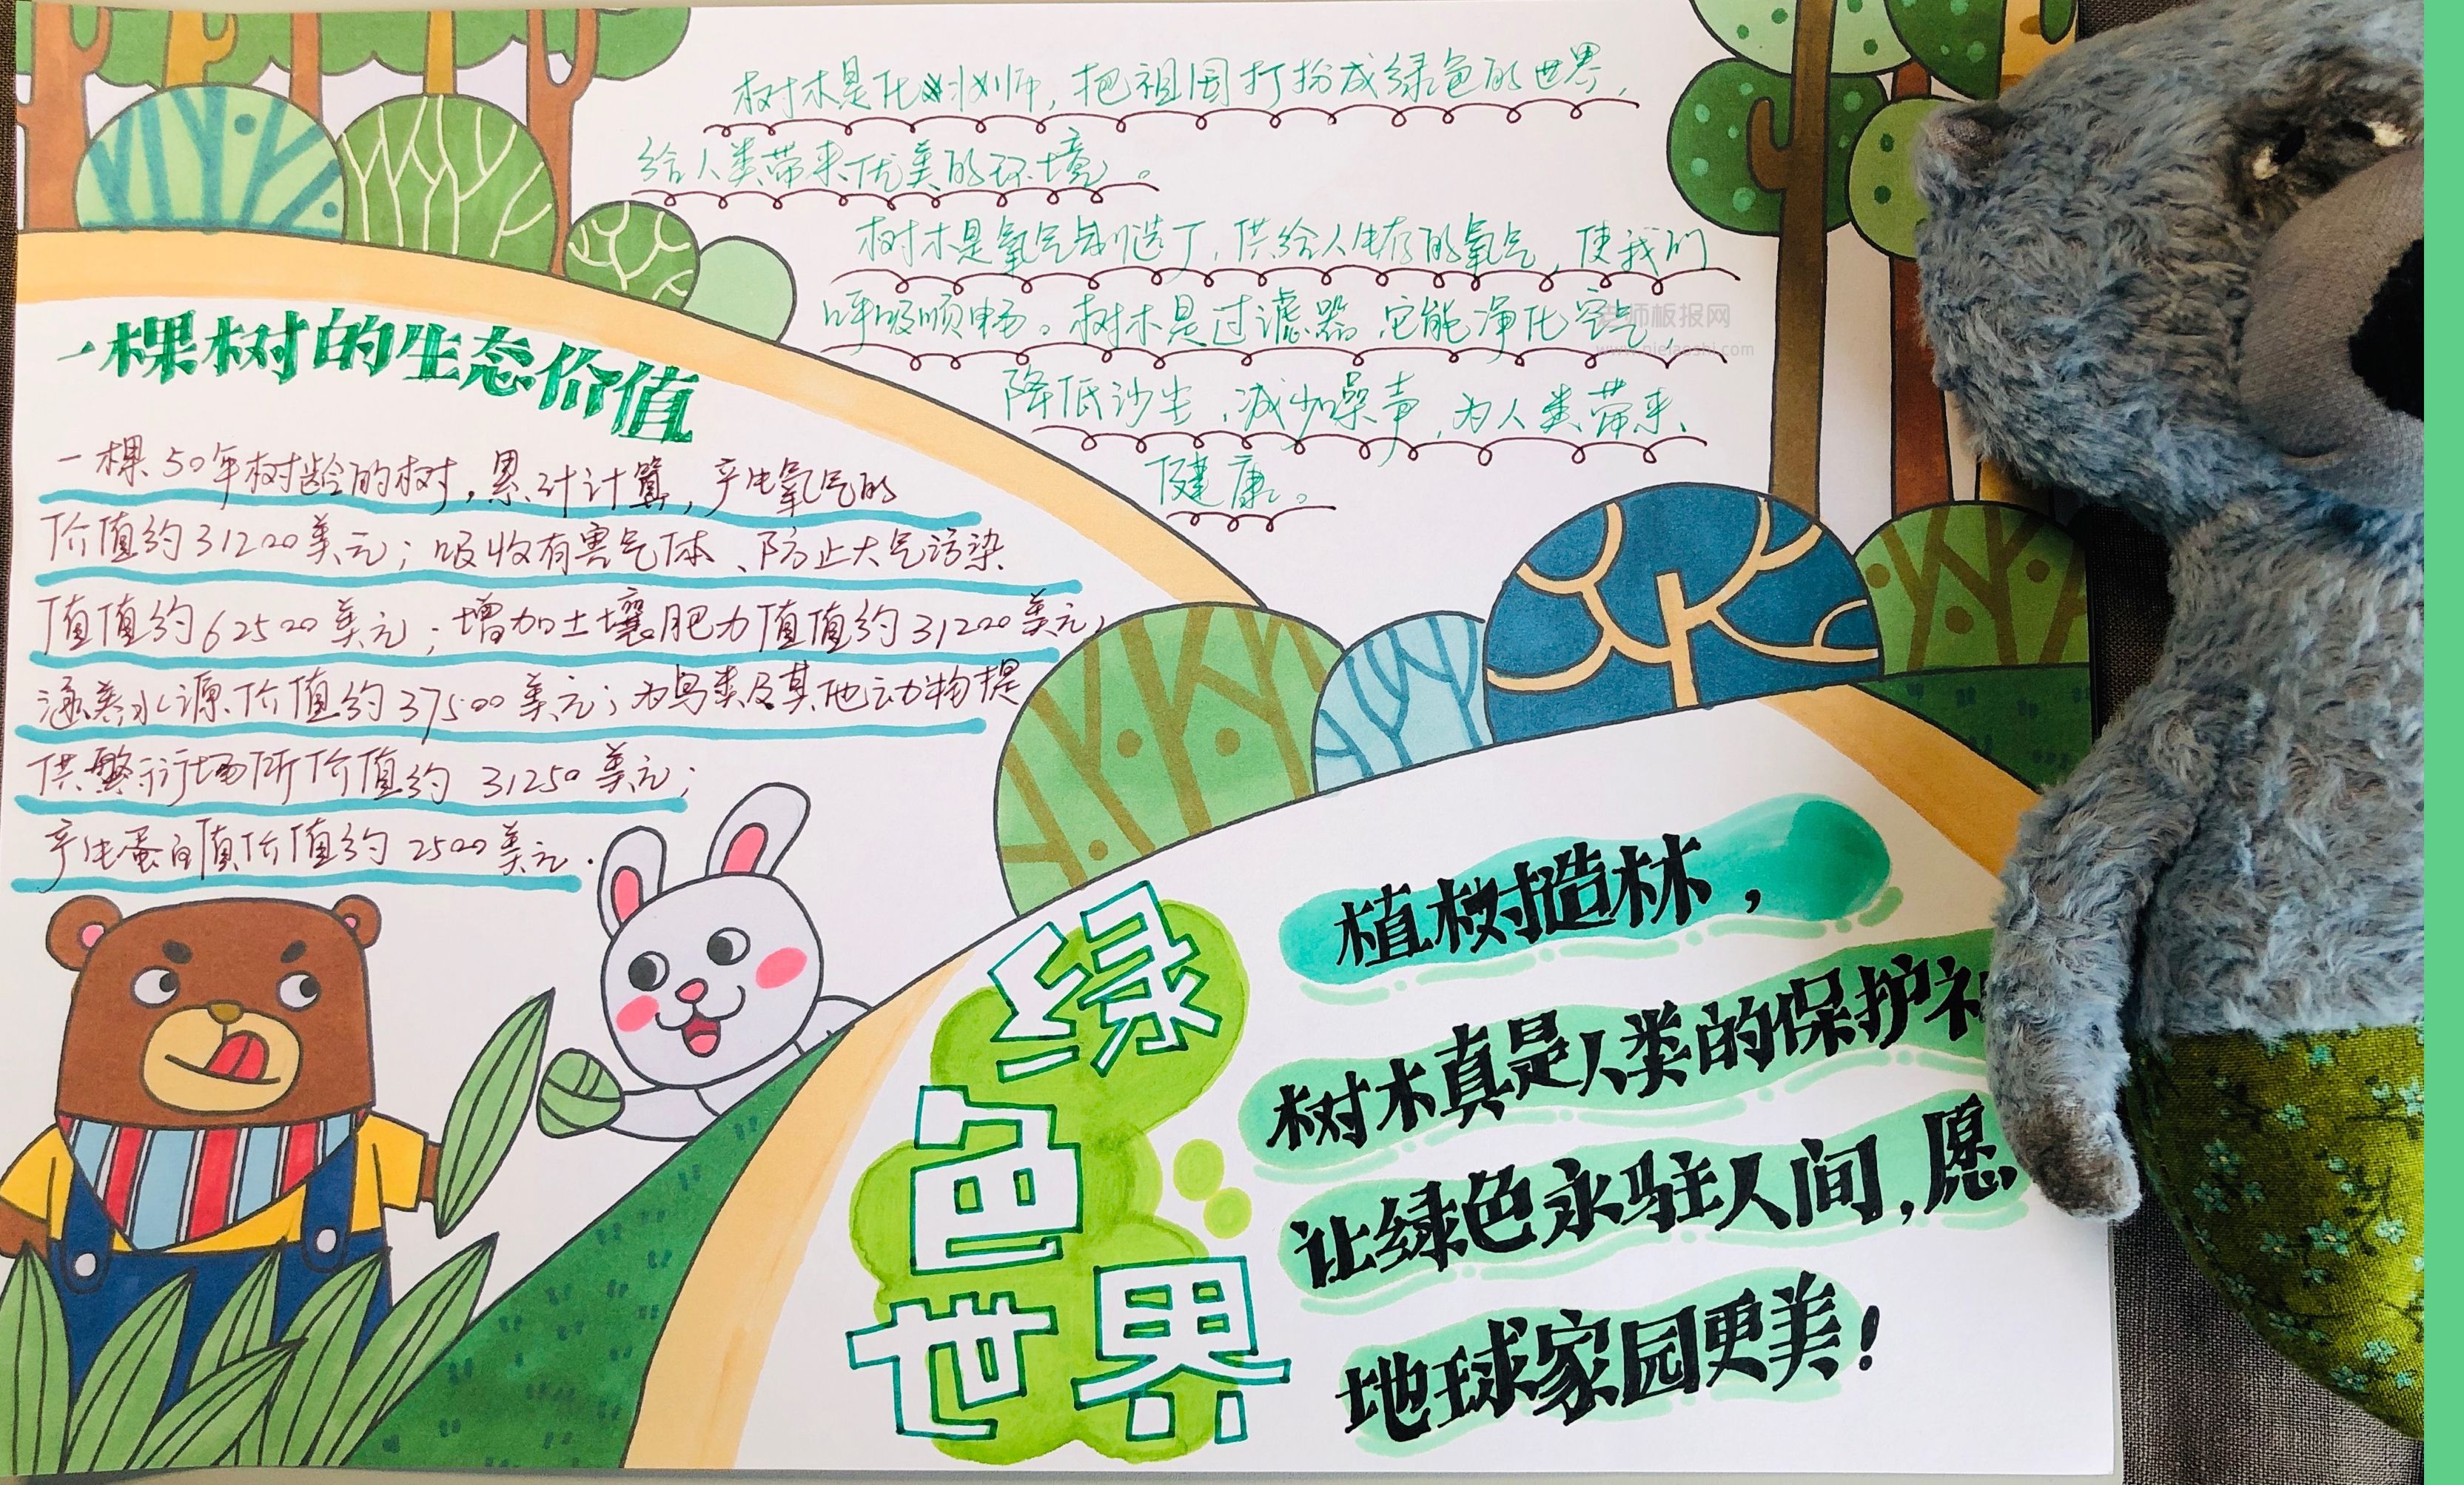 树木是化妆师，把祖国打扮成绿色的世界，
给人类带来优美的环境。
树木是氧气制造厂，供给人生存的氧气，使我们
呼吸顺畅。树木是过滤器，它能净化空气，
降低沙尘，减少噪声，为人类带来
健康。
老师板报网
一棵树的生态价值
一棵50年树龄的树，累计计算，产生氧气的
价值约31200美元；吸收有害气体、防止大气污染
值值约62500美元；增加土壤肥力值值约31200美元；
涵养水源价值约37500美元；为鸟类及其他动物提
供繁衍场所价值约31250美元；
产生蛋白质价值约2500美元.
绿
色
世界
植树造林，
树木真是人类的保护神
让绿色永驻人间，愿
地球家园更美！